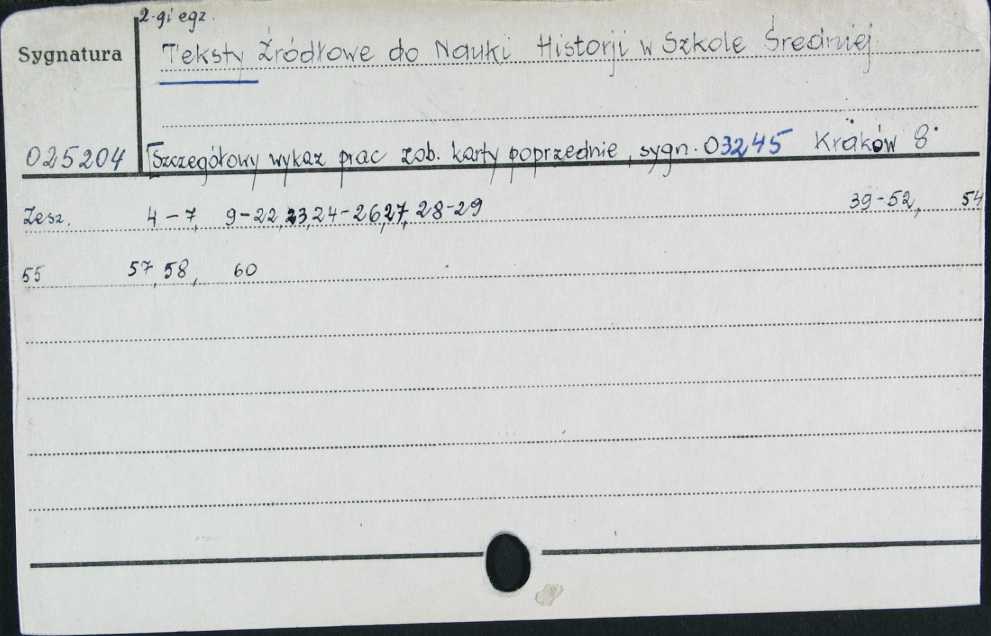 2-gi egz.
Sygnatura
Teksty Źródłowe do Nauki Historji w Szkole Średniej
025204
[Szczegółowy wykaz prac zob. karty poprzednie, sygn. 03245 Kraków 8°
Zesz. 4-7, 9-22, 23, 24-26, 27, 28-29 39-52, 54
55 57, 58, 60